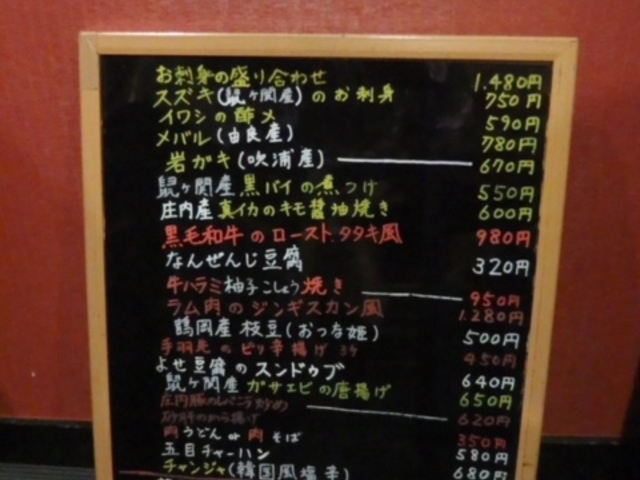 お刺身の盛り合わせ 1.480円
スズキ(鼠ヶ関産)のお刺身 750円
イワシの酢〆 590円
メバル(由良産) 780円
岩ガキ(吹浦産) 670円
鼠ヶ関産黒バイの煮つけ 550円
庄内産真イカのキモ醤油焼き 600円
黒毛和牛のロースト.タタキ風 980円
なんぜんじ豆腐 320円
牛ハラミ柚子こしょう焼き 950円
ラム肉のジンギスカン風 1.280円
鶴岡産枝豆(おつな姫) 500円
手羽先のピリ辛揚げ 3ケ 450円
よせ豆腐のスンドゥブ 640円
鼠ヶ関産ガサエビの唐揚げ 650円
庄内豚のレバニラ炒め
砂肝のから揚げ 620円
肉うどん or 肉そば 350円
五目チャーハン 580円
チャンジャ(韓国風塩辛) 680円